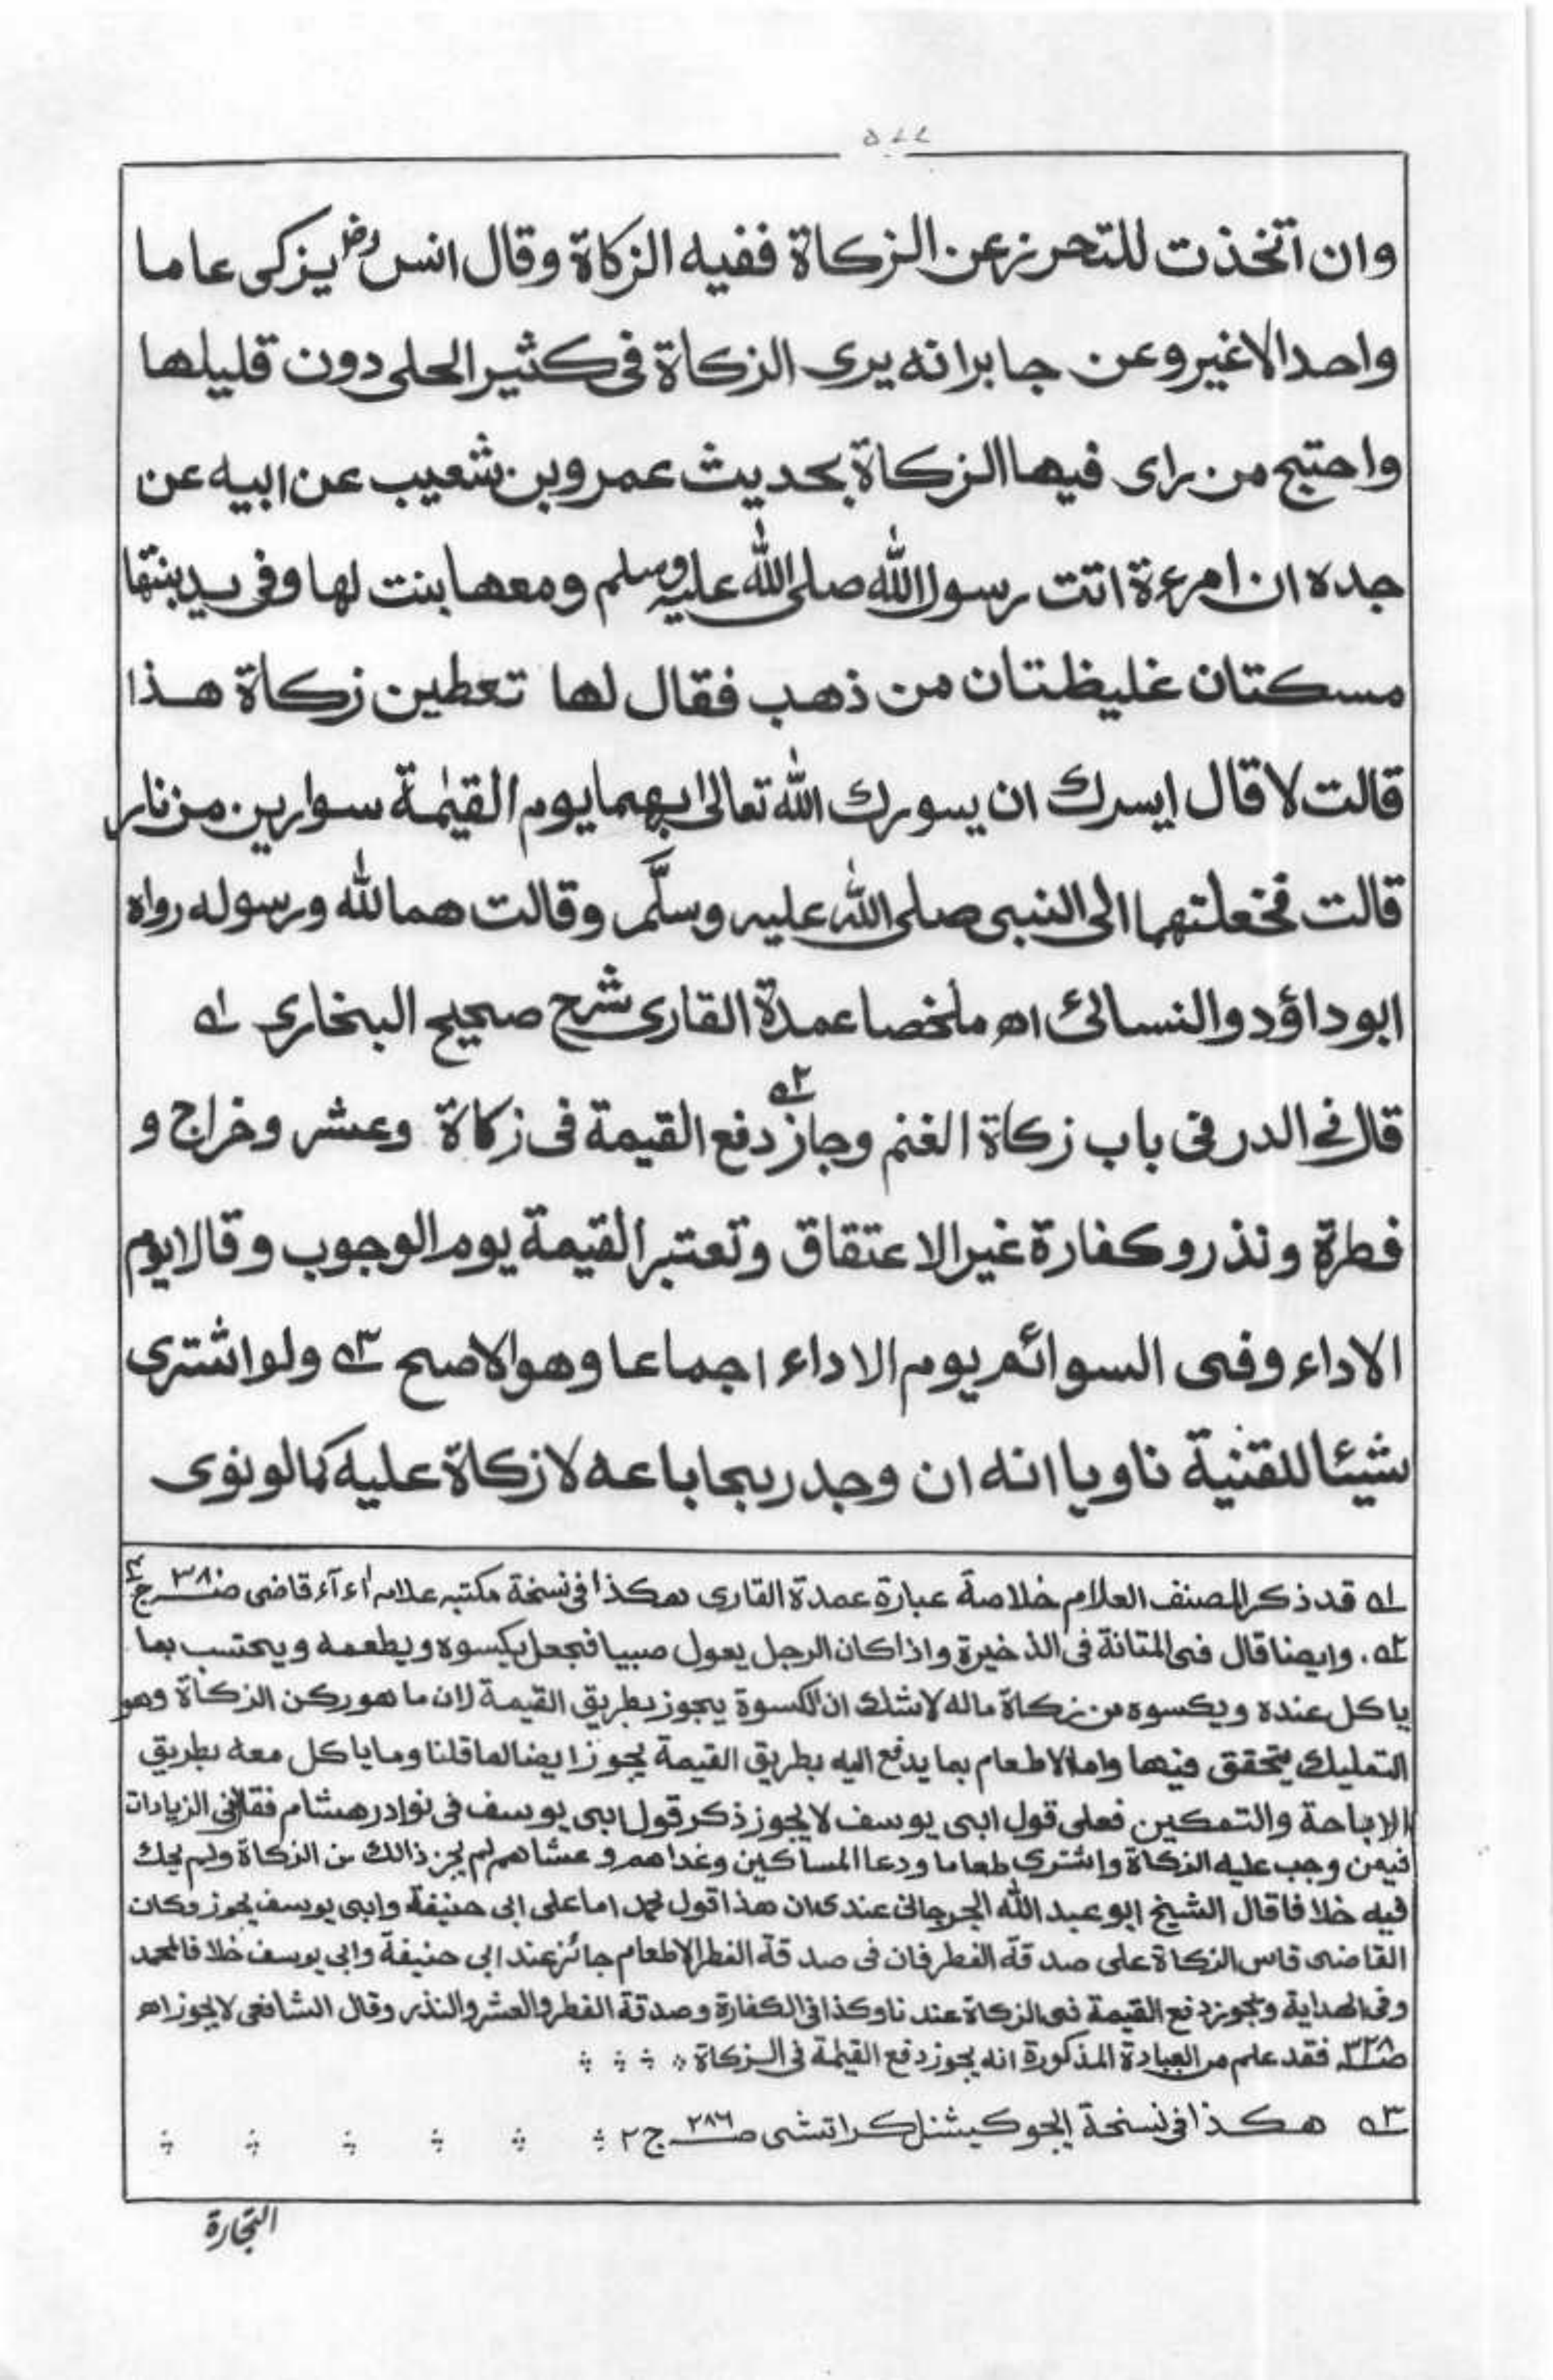 وان اتخذت للتحرز عن الزكاة ففيه الزكاة وقال انس رض يزكى عاما
واحدا لا غير وعن جابر انه يرى الزكاة فى كثير الحلى دون قليلها
واحتج من راى فيها الزكاة بحديث عمرو بن شعيب عن ابيه عن
جده ان امرءة اتت رسول الله صلى الله عليه وسلم ومعها بنت لها وفى يد بنتها
مسكتان غليظتان من ذهب فقال لها تعطين زكاة هذا
قالت لا قال ايسرك ان يسورك الله تعالى بهما يوم القيٰمة سوارين من نار
قالت فخعلتهما الى النبى صلى الله عليه وسلّم وقالت هما لله ورسوله رواه
ابوداؤد والنسائى اھ ملخصا عمدة القارى شرح صحيح البخارى ١ه
قال فى الدر فى باب زكاة الغنم وجاز ٢ه دفع القيمة فى زكاة وعشر وخراج و
فطرة ونذر وكفارة غير الاعتقاق وتعتبر القيمة يوم الوجوب وقالا يوم
الاداء وفى السوائم يوم الاداء اجماعا وهو الاصح ٣ه ولو اشترى
شيئا للقنية ناويا انه ان وجد ربحا باعه لا زكاة عليه كما لو نوى
١ه قد ذكر المصنف العلام خلاصة عبارة عمدة القارى هكذا فى نسخة مكتبه علامه اء آء قاضى صـ ٣٨٠ ج ٤
٢ه. وايضا قال فى المتانة فى الذخيرة واذا كان الرجل يعول صبيا فجعل يكسوه ويطعمه ويحتسب بما
ياكل عنده ويكسوه من زكاة ماله لاشك ان الكسوة يجوز بطريق القيمة لان ما هو ركن الزكاة وهو
التمليك يتحقق فيها واما الاطعام بما يدفع اليه بطريق القيمة يجوز ايضا لما قلنا وما ياكل معه بطريق
الاباحة والتمكين فعلى قول ابى يوسف لا يجوز ذكر قول ابى يوسف فى نوادر هشام فقال فى الزيادات
فيمن وجب عليه الزكاة واشترى طعاما ودعا المساكين وغداهم وعشاهم لم يجز ذالك من الزكاة ولم يحك
فيه خلافا قال الشيخ ابو عبد الله الجرجانى عندى ان هذا قول محمد اما على ابى حنيفة وابى يوسف يجوز وكان
القاضى قاس الزكاة على صدقة الفطر فان فى صدقة الفطر الاطعام جائز عند ابى حنيفة وابى يوسف خلافا لمحمد
وفى الهداية ويجوز دفع القيمة فى الزكاة عند نا وكذا فى الكفارة وصدقة الفطر والعشر والنذر وقال الشافعى لا يجوز اھ
صـ ٣٢٨ فقد علم من العبادة المذكورة انه يجوز دفع القيمة فى الزكاة
٣ه هكذا فى نسخة ايجوكيشنل كراتشى صـ ٢٨٦ ج ٢
التجارة